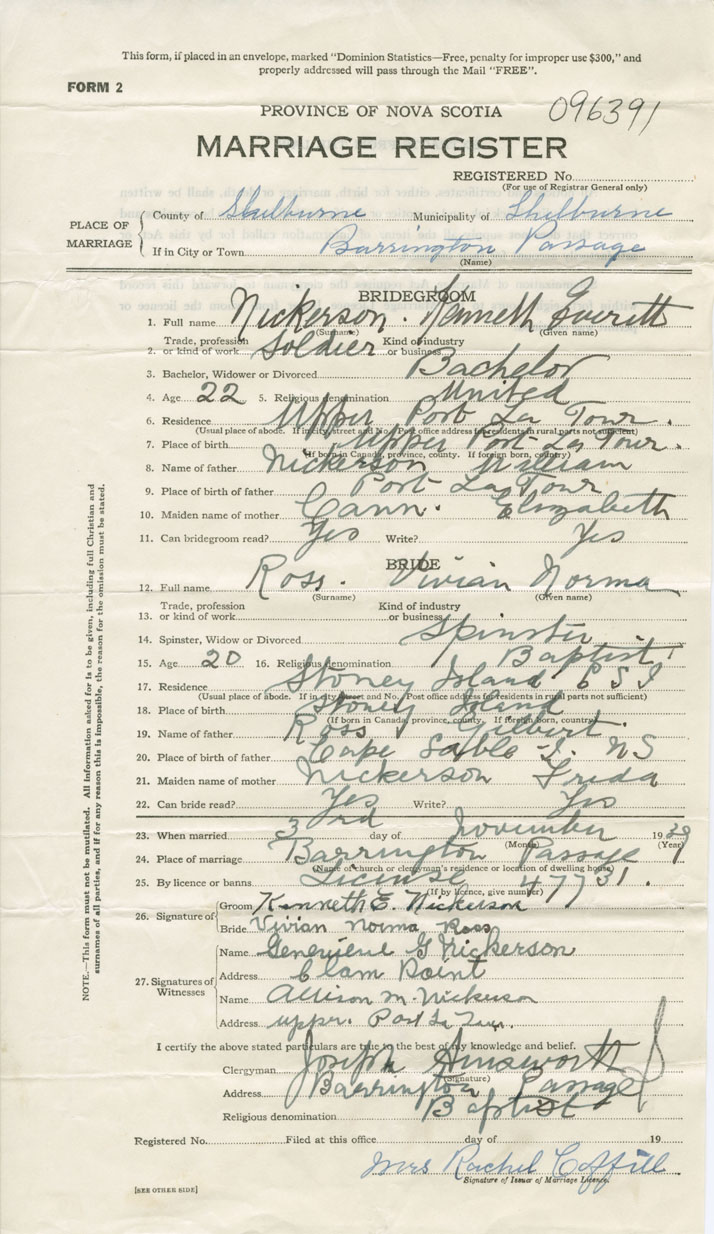 This form, if placed in an envelope, marked "Dominion Statistics—Free, penalty for improper use $300," and
properly addressed will pass through the Mail "FREE".
FORM 2
PROVINCE OF NOVA SCOTIA 096391
MARRIAGE REGISTER
REGISTERED No.
(For use of Registrar General only)
PLACE OF MARRIAGE
County of Shelburne Municipality of Shelburne
If in City or Town Barrington Passage
(Name)
BRIDEGROOM
1. Full name Nickerson. Kenneth Everett
(Surname) (Given name)
2. Trade, profession or kind of work Soldier Kind of industry or business
3. Bachelor, Widower or Divorced Bachelor
4. Age 22 5. Religious denomination United
6. Residence Upper Port La Tour.
(Usual place of abode. If in city, street and No. Post office address for residents in rural parts not sufficient)
7. Place of birth Upper Port La Tour.
(If born in Canada, province, county. If foreign born, country)
8. Name of father Nickerson William
9. Place of birth of father Port La Tour
10. Maiden name of mother Cann. Elizabeth
11. Can bridegroom read? Yes Write? Yes
BRIDE
12. Full name Ross. Vivian Norma
(Surname) (Given name)
13. Trade, profession or kind of work Kind of industry or business
14. Spinster, Widow or Divorced Spinster
15. Age 20 16. Religious denomination Baptist
17. Residence Stoney Island C S I
(Usual place of abode. If in city, street and No. Post office address for residents in rural parts not sufficient)
18. Place of birth Stoney Island
(If born in Canada, province, county. If foreign born, country)
19. Name of father Ross Gilbert.
20. Place of birth of father Cape Sable I. NS
21. Maiden name of mother Nickerson Frida
22. Can bride read? Yes Write? Yes
23. When married 3rd day of November 1939
(Month) (Year)
24. Place of marriage Barrington Passage
(Name of church or clergyman's residence or location of dwelling house)
25. By licence or banns License 47731.
(If by licence, give number)
26. Signature of
Groom Kenneth E. Nickerson
Bride Vivian Norma Ross
27. Signatures of Witnesses
Name Genevieve G Nickerson
Address Clam Point
Name Allison M. Nickerson
Address upper. Port La Tour.
I certify the above stated particulars are true to the best of my knowledge and belief.
Clergyman Joseph Ainsworth
(Signature)
Address Barrington Passage
Religious denomination Baptist
Registered No. Filed at this office day of 19
Mrs Rachel Coffill
Signature of Issuer of Marriage Licence.
[SEE OTHER SIDE]
NOTE.—This form must not be mutilated. All information asked for is to be given, including full Christian and
surnames of all parties, and if for any reason this is impossible, the reason for the omission must be stated.